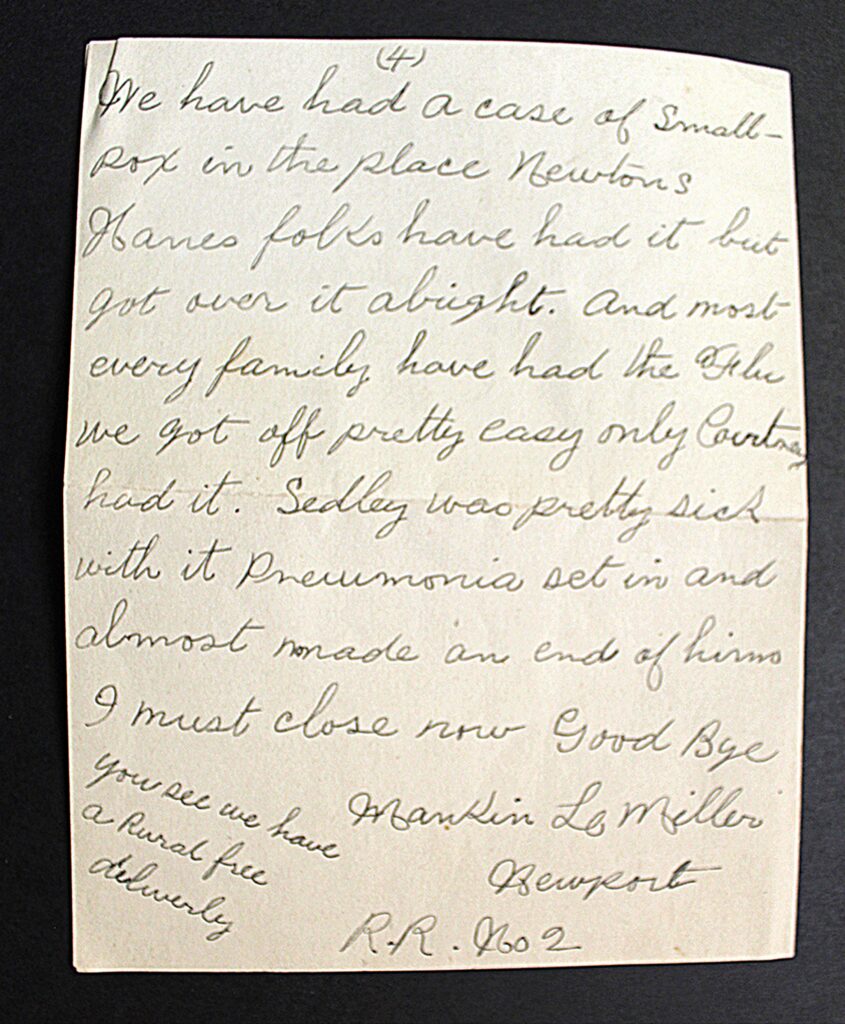 (4)
We have had a case of Small-
pox in the place Newtons
Hanes folks have had it but
got over it alright. And most
every family have had the Flu
we got off pretty easy only Courtney
had it. Sedley was pretty sick
with it Pneumonia set in and
almost made an end of him
I must close now Good Bye
you see we have
a Rural free
deliverly
Mankin L. Miller
Newport
R.R. No 2